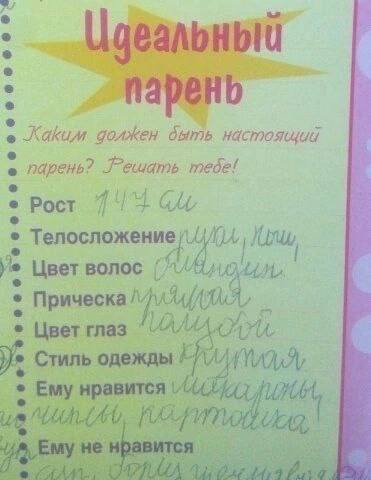 Идеальный
парень
Каким должен быть настоящий
парень? Решать тебе!
Рост 147 см
Телосложение руки, ныш,
Цвет волос блондин
Прическа прямая
Цвет глаз галубой
Стиль одежды крутая
Ему нравится макароны,
чипсы, картошка
Ему не нравится
суп, борщ